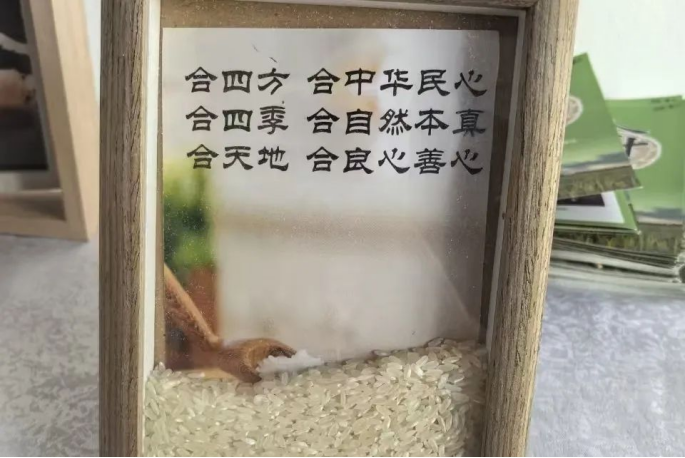 合四方 合中华民心
合四季 合自然本真
合天地 合良心善心